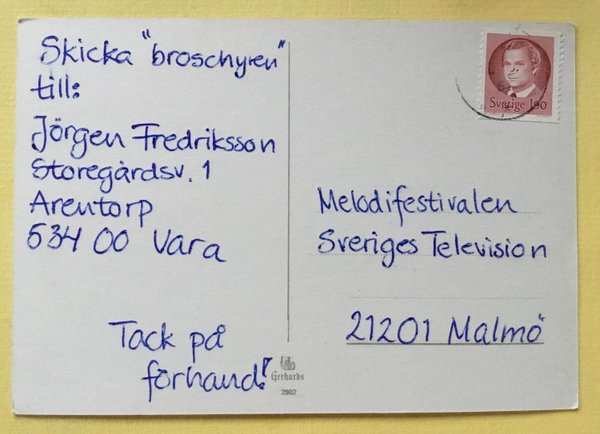 Skicka "broschyren"
till:
Jörgen Fredriksson
Storegårdsv. 1
Arentorp
534 00 Vara
Tack på
förhand!
Gerhards
2902
Sverige 1.90
Melodifestivalen
Sveriges Television
21201 Malmö